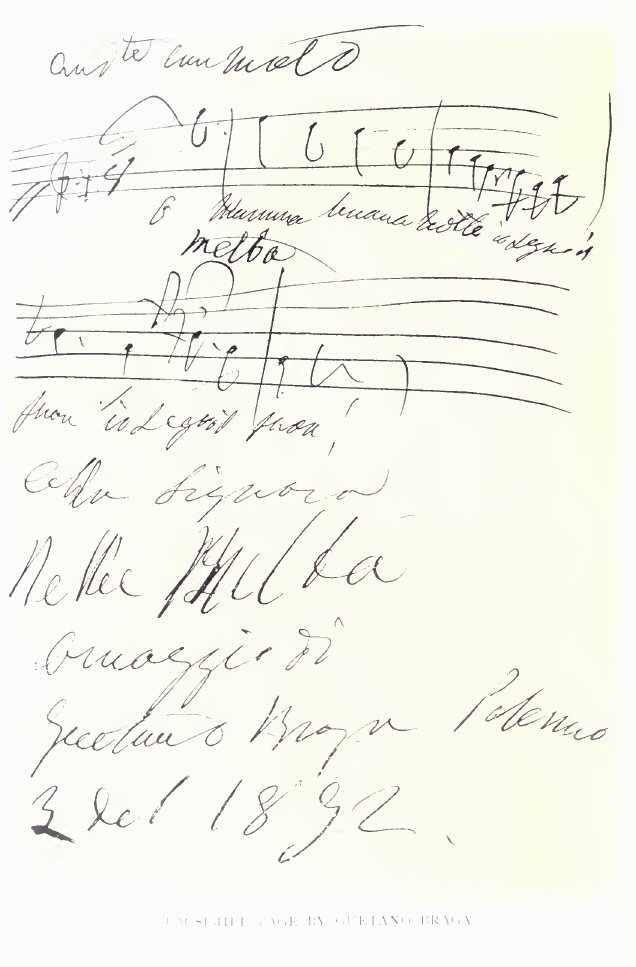 andte con moto
O Mamma buona notte io seguo il
Melba
suon io seguo il suon!
alla Signora
Nellie Melba
omaggio di
Gaetano Braga Palermo
3 del 1892.
FACSIMILE PAGE BY GUETANO BRAGA